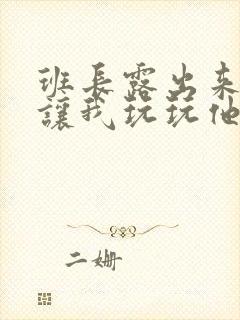 班長露出來
讓我玩玩他
二姍